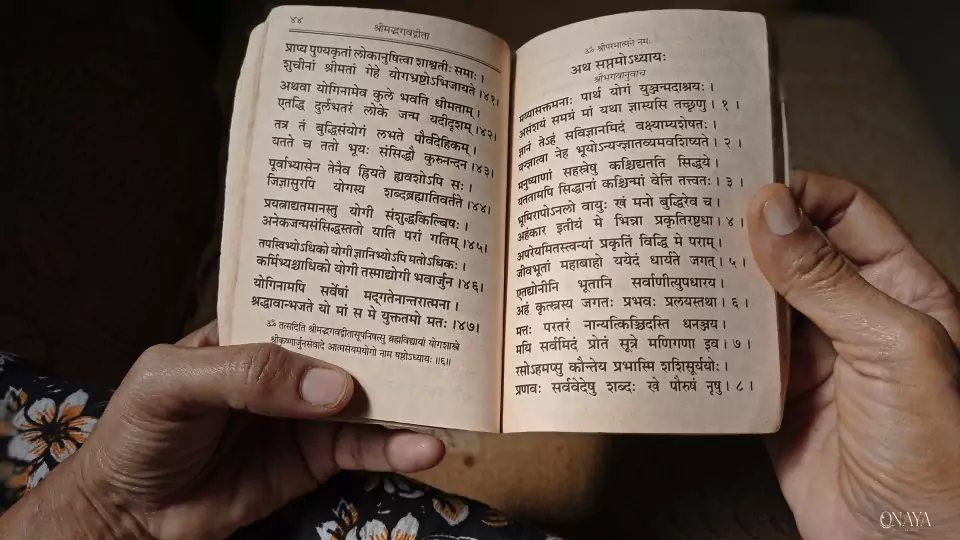 ४४
श्रीमद्भगवद्गीता
प्राप्य पुण्यकृतां लोकानुषित्वा शाश्वतीः समाः ।
शुचीनां श्रीमतां गेहे योगभ्रष्टोऽभिजायते ।४१।
अथवा योगिनामेव कुले भवति धीमताम् ।
एतद्धि दुर्लभतरं लोके जन्म यदीदृशम् ।४२।
तत्र तं बुद्धिसंयोगं लभते पौर्वदेहिकम् ।
यतते च ततो भूयः संसिद्धौ कुरुनन्दन ।४३।
पूर्वाभ्यासेन तेनैव ह्रियते ह्यवशोऽपि सः ।
जिज्ञासुरपि योगस्य शब्दब्रह्मातिवर्तते ।४४।
प्रयत्नाद्यतमानस्तु योगी संशुद्धकिल्बिषः ।
अनेकजन्मसंसिद्धस्ततो याति परां गतिम् ।४५।
तपस्विभ्योऽधिको योगी ज्ञानिभ्योऽपि मतोऽधिकः ।
कर्मिभ्यश्चाधिको योगी तस्माद्योगी भवार्जुन ।४६।
योगिनामपि सर्वेषां मद्गतेनान्तरात्मना ।
श्रद्धावान्भजते यो मां स मे युक्ततमो मतः ।४७।
ॐ तत्सदिति श्रीमद्भगवद्गीतासूपनिषत्सु ब्रह्मविद्यायां योगशास्त्रे
श्रीकृष्णार्जुनसंवादे आत्मसंयमयोगो नाम षष्ठोऽध्यायः ॥६॥
ॐ श्रीपरमात्मने नमः
अथ सप्तमोऽध्यायः
श्रीभगवानुवाच
मय्यासक्तमनाः पार्थ योगं युञ्जन्मदाश्रयः ।
असंशयं समग्रं मां यथा ज्ञास्यसि तच्छृणु । १ ।
ज्ञानं तेऽहं सविज्ञानमिदं वक्ष्याम्यशेषतः ।
यज्ज्ञात्वा नेह भूयोऽन्यज्ज्ञातव्यमवशिष्यते । २ ।
मनुष्याणां सहस्रेषु कश्चिद्यतति सिद्धये ।
यततामपि सिद्धानां कश्चिन्मां वेत्ति तत्त्वतः । ३ ।
भूमिरापोऽनलो वायुः खं मनो बुद्धिरेव च ।
अहंकार इतीयं मे भिन्ना प्रकृतिरष्टधा । ४ ।
अपरेयमितस्त्वन्यां प्रकृतिं विद्धि मे पराम् ।
जीवभूतां महाबाहो ययेदं धार्यते जगत् । ५ ।
एतद्योनीनि भूतानि सर्वाणीत्युपधारय ।
अहं कृत्स्नस्य जगतः प्रभवः प्रलयस्तथा । ६ ।
मत्तः परतरं नान्यत्किञ्चिदस्ति धनञ्जय ।
मयि सर्वमिदं प्रोतं सूत्रे मणिगणा इव । ७ ।
रसोऽहमप्सु कौन्तेय प्रभास्मि शशिसूर्ययोः ।
प्रणवः सर्ववेदेषु शब्दः खे पौरुषं नृषु । ८ ।
QNAYA